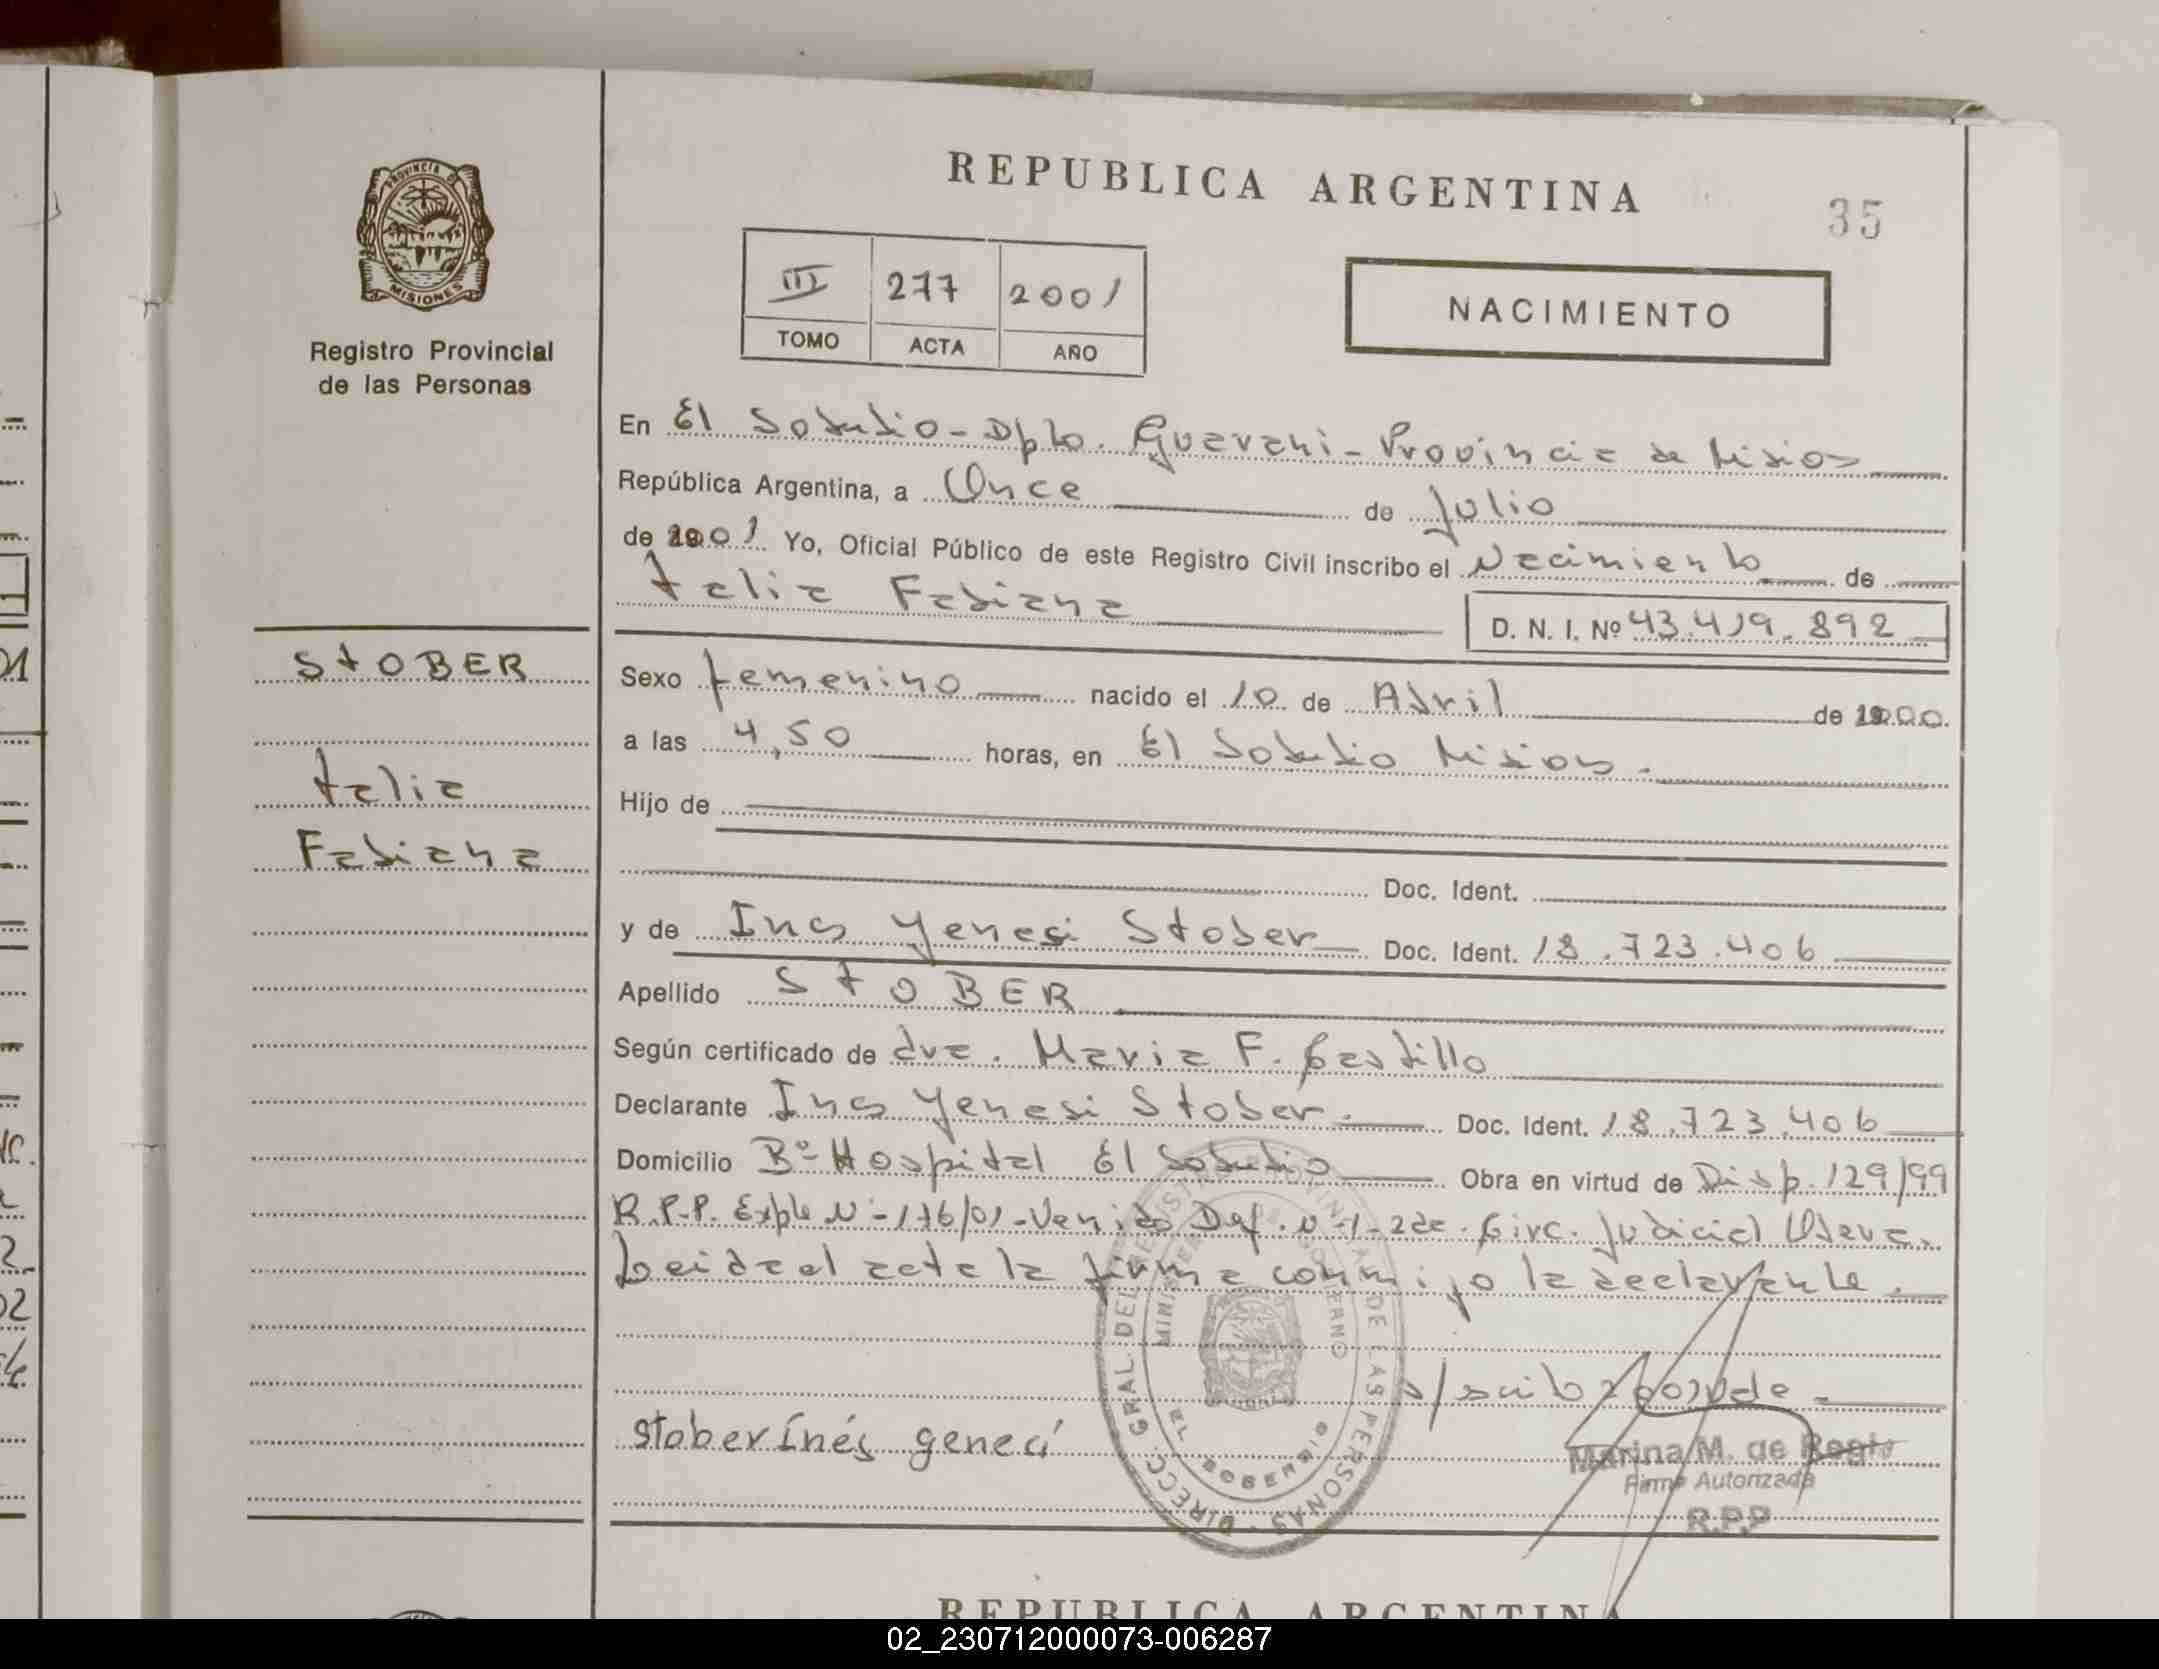 REPUBLICA ARGENTINA
35
PROVINCIA DE
MISIONES
Registro Provincial
de las Personas
III 277 2001
TOMO ACTA AÑO
NACIMIENTO
En El Soberbio - Dpto. Guarani - Provincia de Misiones
República Argentina, a Once de Julio
de 2001 Yo, Oficial Público de este Registro Civil inscribo el Nacimiento de
Talia Fabiana
D. N. I. Nº 43.419.892
STOBER
Talia
Fabiana
Sexo femenino nacido el 10 de Abril de 2000
a las 4,50 horas, en El Soberbio Misiones.
Hijo de
Doc. Ident.
y de Ines Yeneci Stober Doc. Ident. 18.723.406
Apellido STOBER
Según certificado de dra. Maria F. Castillo
Declarante Ines Yenesi Stober. Doc. Ident. 18.723.406
Domicilio Bº Hospital El Soberbio Obra en virtud de Disp. 129/99
R.P.P. Expte Nº 176/01 - Venido Def. Nº 1 - 2da. Circ. Judicial Obera.
Leida el acta la firma conmigo la declarante.
Stober Inés geneci
Marina M. de Regio
Firma Autorizada
R.P.P
DIRECC. GRAL. DEL REGISTRO PROVINCIAL DE LAS PERSONAS
MINISTERIO DE GOBIERNO
EL SOBERBIO
REPUBLICA ARGENTINA
02_230712000073-006287